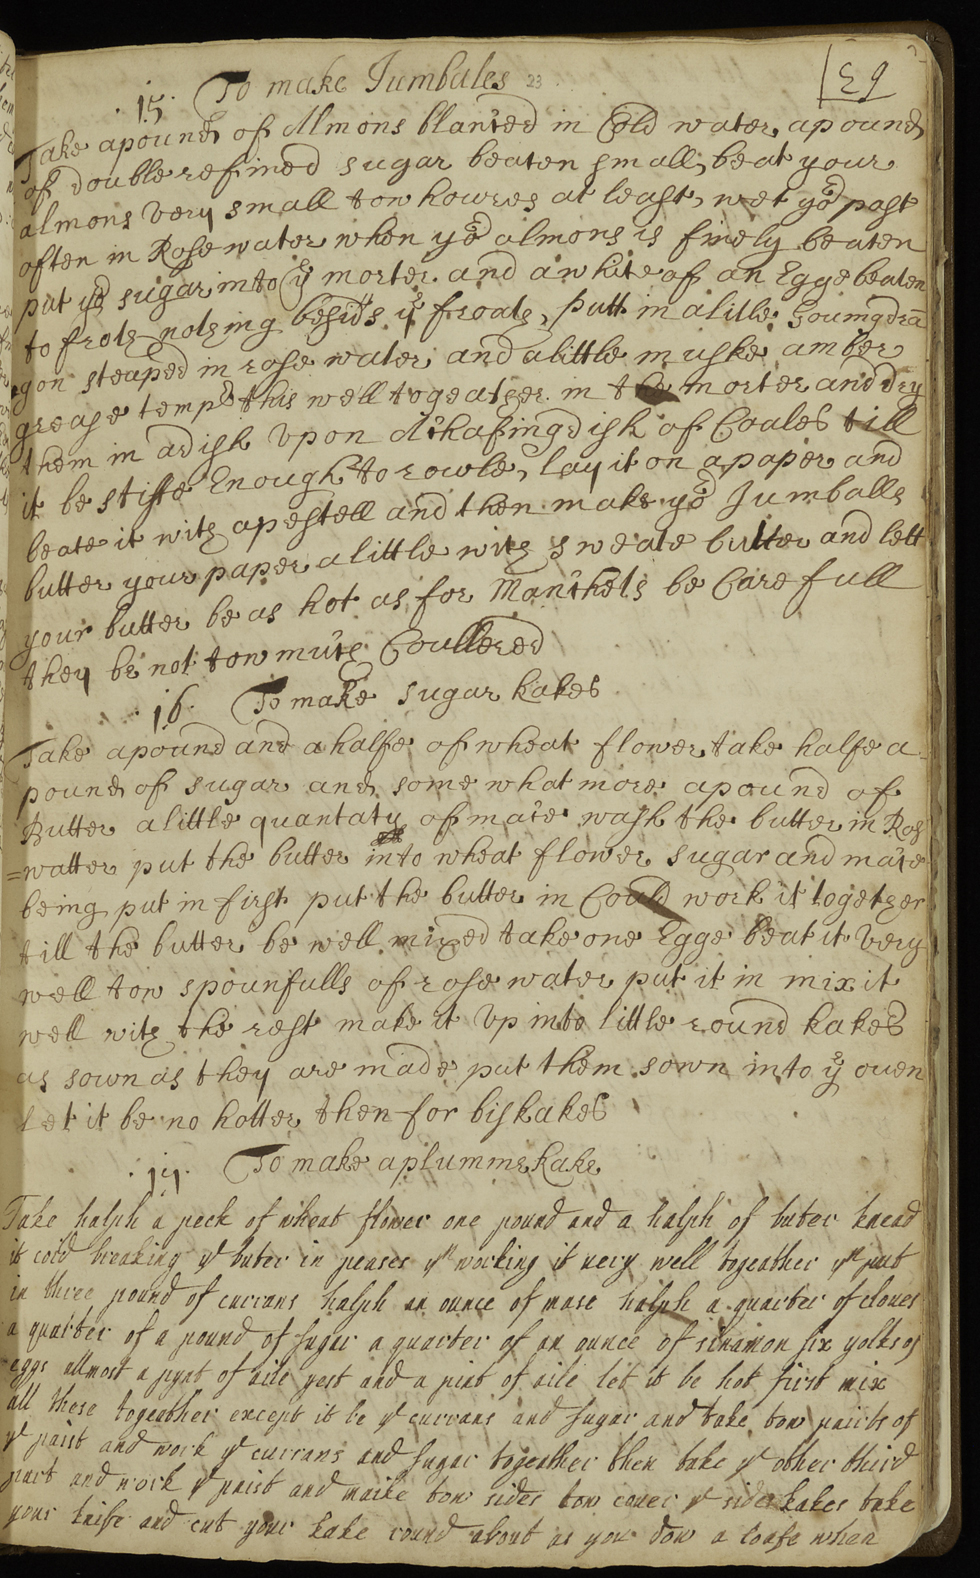 To make Jumbales 23
.15.
Take a pound of Almons blanced in Cold water, a pound
of double refined sugar beaten small, beat your
almons very small tow howres at least, wet yͤ past
often in Rose water when yͤ almons is finely beaten
put yͤ sugar into yͤ morter. and a white of an Egge beaten
to froth nothing besids yͤ froath, putt in a litle Goumgdra
gon steaped in rose water, and a little muske amber
grease temper this well togeather in the morter and dry
them in a dish Vpon A chafingdish of Coales till
it be stiffe Enough to rowle, lay it on a paper and
beate it with a pestell and then make yͤ Jumballs
butter your paper a little with sweate butter and lett
your butter be as hot as for Manchets be Carefull
they be not tow much Coullered
.16. To make sugar kakes
Take a pound and a halfe of wheat flower, take halfe a
pound of sugar and some what more a pound of
Butter a little quantaty of mace wash the butter in Ros
=watter put the butter into wheat flower sugar and mace
being put in first put the butter in Could work it togetger
till the butter be well mixed take one Egge beat it Very
well tow spounfulls of rose water put it in mix it
well with the rest make it Vp into little round kakes
as sown as they are made put them sown into yͤ ouen
Let it be no hotter then for biskakes
.17. To make a plumme kake
Take halph a peck of wheat flower one pound and a halph of buter knead
it cold breaking yͤ buter in peases yⁿ working it uery well togeather yⁿ put
in three pound of currans halph an ounce of mase halph a quarter of cloues
a quarter of a pound of sugar a quarter of an ounce of sinamon six yolks of
eggs allmost a pynt of aile yest and a pint of aile let it be hot first mix
all these togeather except it be yͤ currans and sugar and take tow pairts of
yͤ paist and work yͤ currans and sugar togeather then take yͤ other third
part and work yͤ paist and maike tow sides tow couer yͤ side kakes take
your knife and cut your kake round about as you dow a loafe when